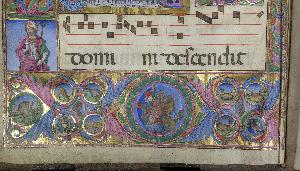 domi ni descendit